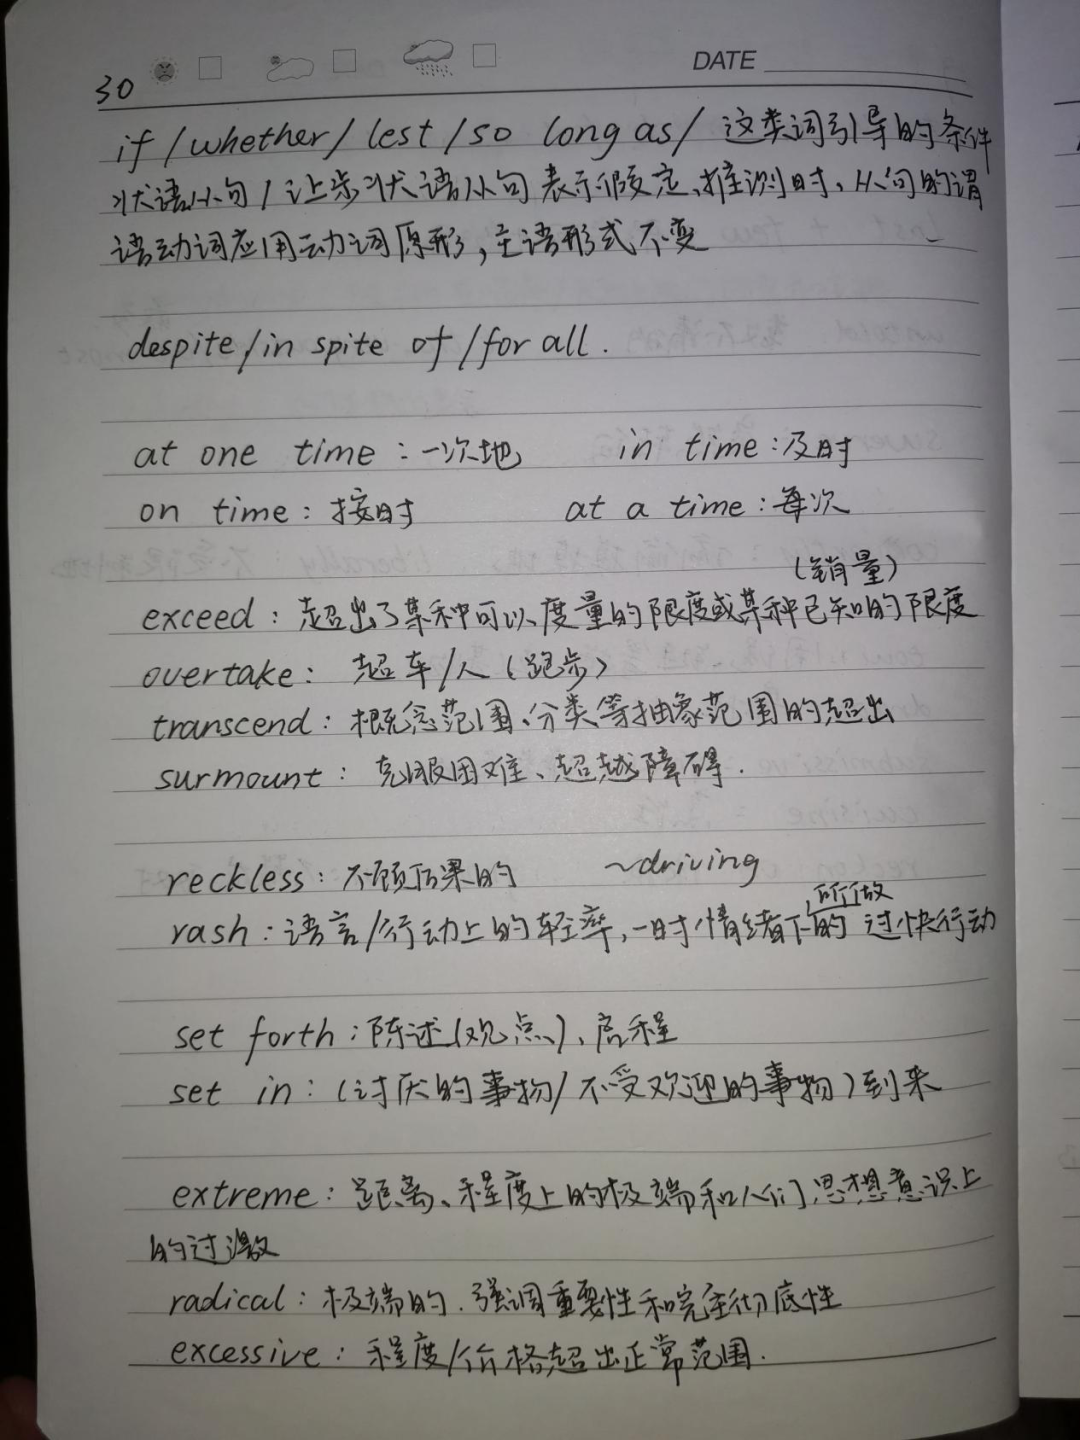 30
DATE
if / whether / lest / so long as / 这类词引导的条件
状语从句 / 让步状语从句 表示假定、推测时、从句的谓
语动词应用动词原形，主语形式不变
despite / in spite of / for all .
at one time : 一次地 in time : 及时
on time : 按时 at a time : 每次
(销量)
exceed : 超出了某种可以度量的限度或某种已知的限度
overtake : 超车/人 (跑步)
transcend : 概念范围、分类等抽象范围的超出
surmount : 克服困难、超越障碍 .
reckless : 不顾后果的 ~driving
所做
rash : 语言/行动上的轻率, 一时情绪下的 过快行动
set forth : 陈述(观点)、启程
set in : (讨厌的事物/不受欢迎的事物)到来
extreme : 距离、程度上的极端和人们思想意识上
的过激
radical : 极端的 . 强调重要性和完全彻底性
excessive : 程度/价格超出正常范围 .